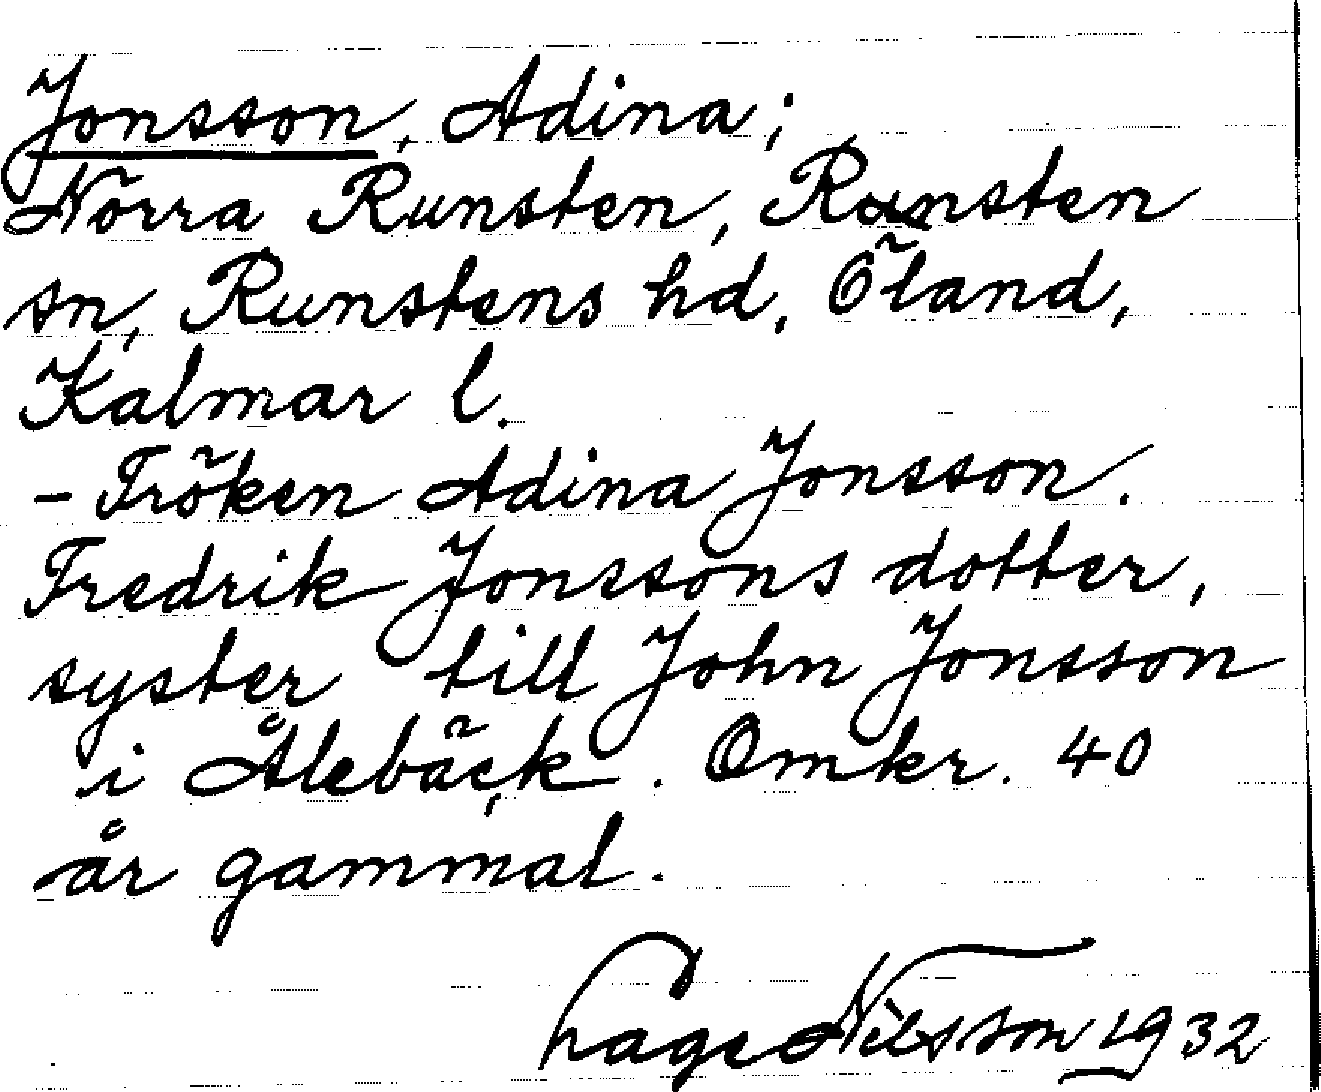 Jonsson, Adina;
Norra Runsten, Runsten
sn, Runstens hd, Öland,
Kalmar l.
- Fröken Adina Jonsson.
Fredrik Jonssons dotter,
syster till John Jonsson
i Ålebäck. Omkr. 40
år gammal.
Nilsson 1932